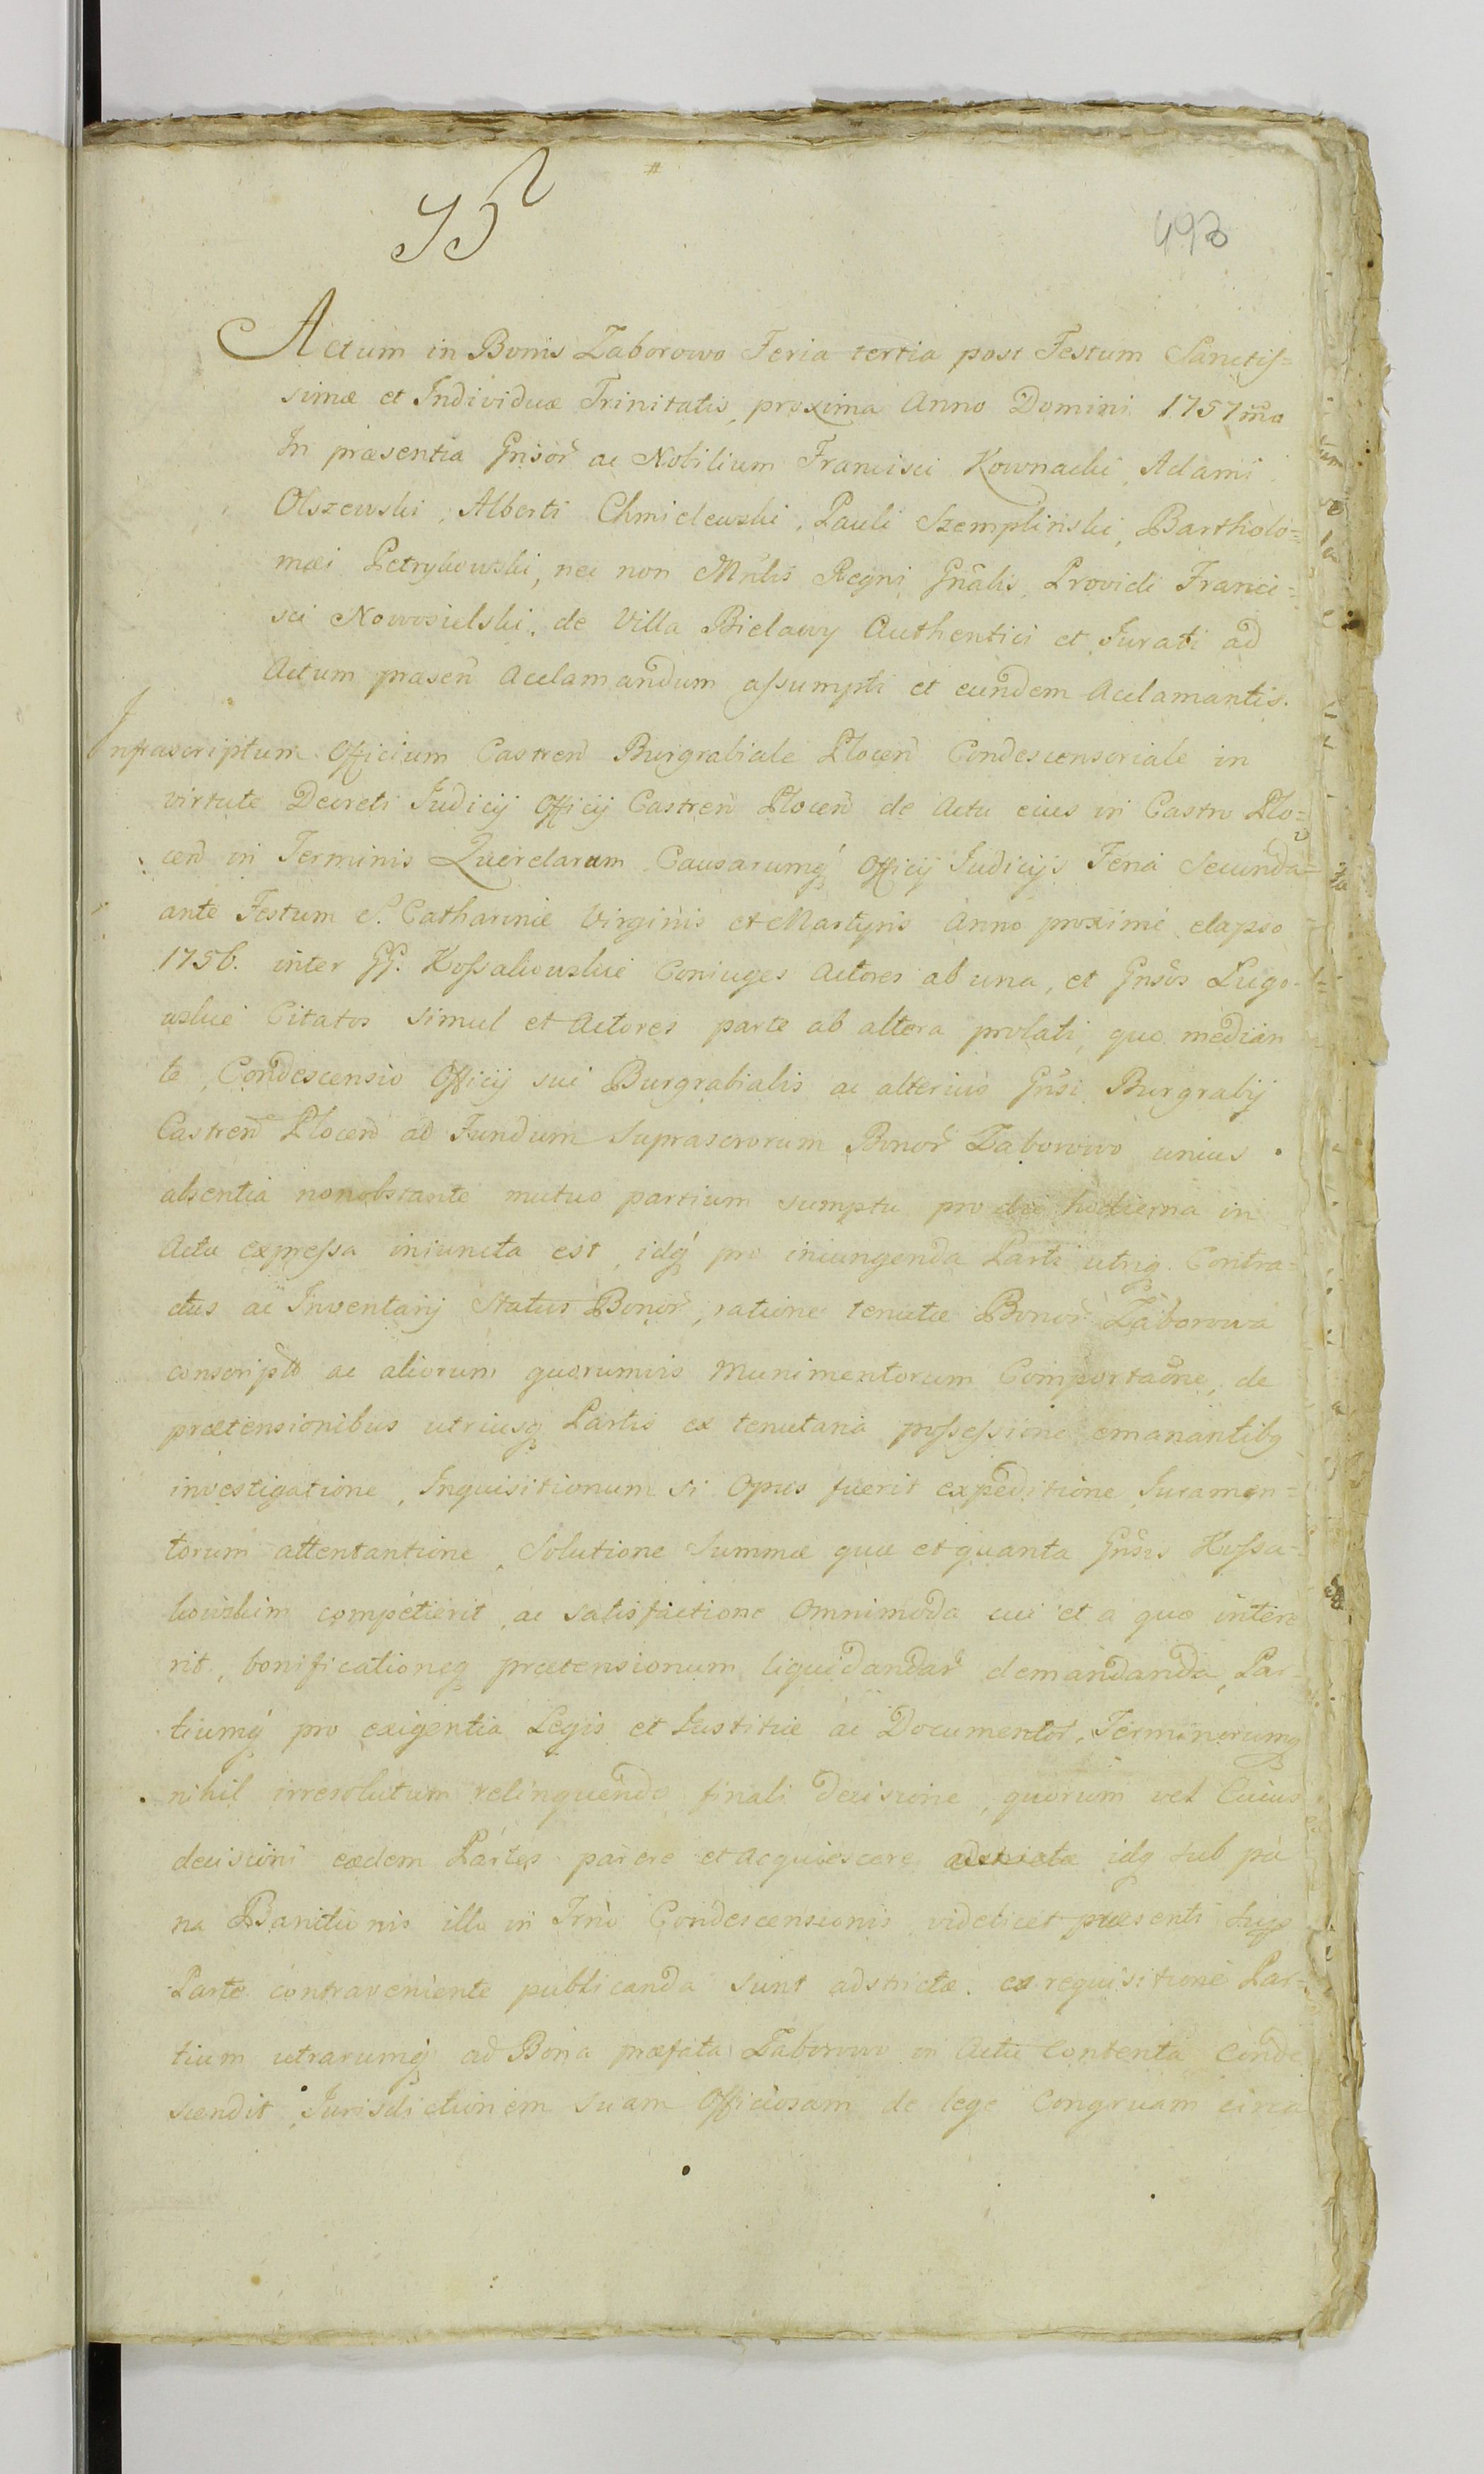 493
Actum in Bonis Zaborowo Feria tertia post Festum Sanctis=
simæ et Individuæ Trinitatis, proxima Anno Domini 1757mo
In præsentia Gnsor ac Nobilium Francisci Kownacki, Adami
Olszewski, Alberti Chmielewski, Pauli Szempliński, Bartholo=
mæi Petrykowski, nec non Mnlis Regni Gnalis, Providi Franci=
sci Nowosielski, de Villa Bielawy Authentici et Jurati ad
Actum præsen Acclamandum assumpti et eundem Acclamantis.
Infrascriptum Officium Castren Burgrabiale Plocen Condescensoriale in
virtute Decreti Judicij Officij Castren Plocen de Actu eius in Castro Plo=
cen in Terminis Querelarum Causarumq Officij Judicijs Feria Secunda
ante Festum S. Catharinæ Virginis et Martyris Anno proxime elapso
1756. inter GG. Kossakowskie Coniuges Actores ab una, et Gnsos Lugo-
wskie Citatos simul et Actores parte ab altera prolati, quo median
te, Condescensio Officij sui Burgrabialis ac alterius Gnsi Burgrabij
Castren Plocen ad Fundum Suprascrorum Bonor Zaborowo unius
absentia nonobstante mutuo partium sumptu pro die hodierna in
Actu expressa iniuncta est, idq pro iniungenda Parti utriq. Contra=
ctus ac Inventarij Status Bonor, ratione tenutæ Bonor Zaborowa
conscripto ac aliorum quorumvis Munimentorum Comportaone, de
prætensionibus utriusq Partis ex tenutaria possessione emanantibq
investigatione, Inquisitionum si Opus fuerit expeditione Juramen=
torum attentantione, Solutione Summæ quæ et quanta Gnsis Kossa=
kowskim competierit, ac satisfactione Omnimoda cui et a quo intere
rit, bonificationeq prætensionum liquidandar demandanda, Par-
tiumq pro exigentia Legis et Justitiæ ac Documentor, Terminorumq
nihil irresolutum relinquendo finali Decisione, quorum vel Cuius
decisioni eædem Partes parere et acquiescere idq sub pæ
na Banitionis illa in Trno Condescensionis videlicet præsenti
Parte contraveniente publicanda sunt adstrictæ. ex requisitione Par=
tium utrarumq ad Bona præfata Zaborowo in Actu Contenta Conde
scendit, Jurisdictionem suam Officiosam de lege Congruam circa